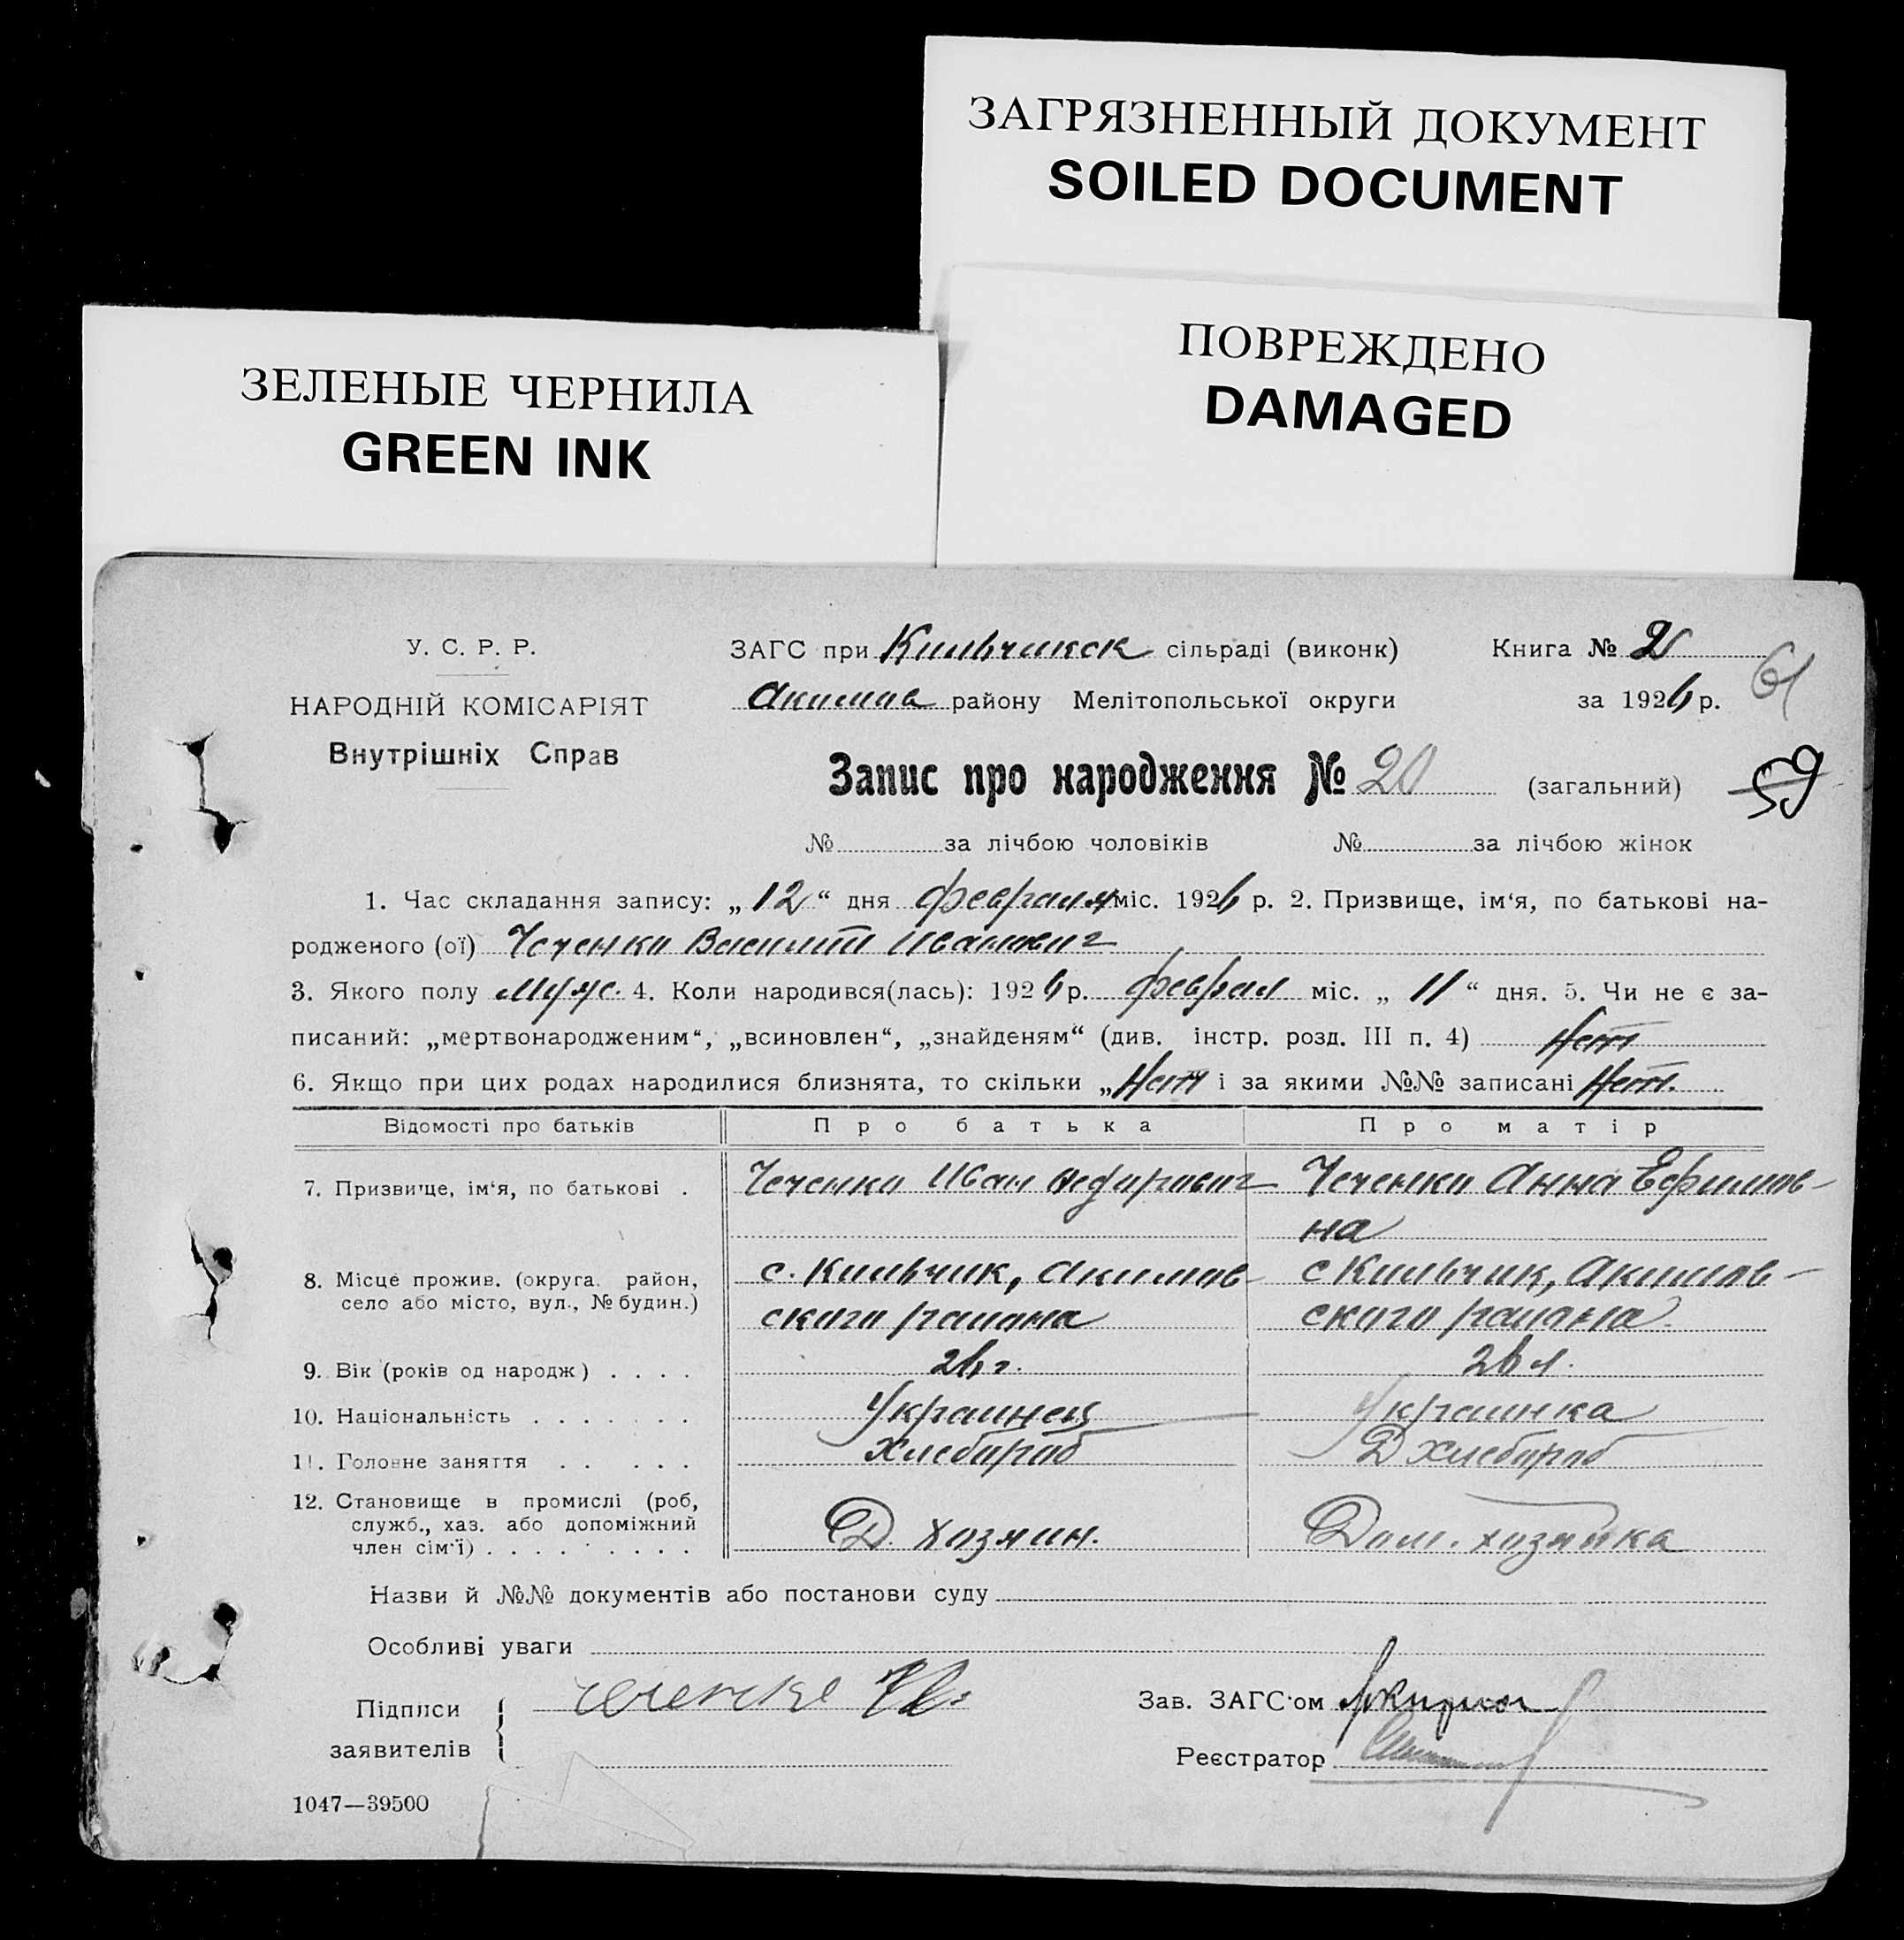 ЗАГРЯЗНЕННЫЙ ДОКУМЕНТ
SOILED DOCUMENT
ПОВРЕЖДЕНО
DAMAGED
ЗЕЛЕНЫЕ ЧЕРНИЛА
GREEN INK
У. С. Р. Р.
НАРОДНІЙ КОМІСАРІЯТ
Внутрішніх Справ
ЗАГС при Кильчикск сільраді (виконк) Книга № 2
Акимов району Мелітопольської округи за 1926 р.
61
Запис про народження № 20 (загальний)
59
№ за лічбою чоловіків № за лічбою жінок
1. Час складання запису: „12“ дня февраля міс. 1926 р. 2. Призвище, ім‘я, по батькові на-
родженого (ої) Чеченко Василий Иванович
3. Якого полу Муж. 4. Коли народився(лась): 1926 р. феврал міс. „11“ дня. 5. Чи не є за-
писаний: „мертвонародженим“, „всиновлен“, „знайденям“ (див. інстр. розд. III п. 4) Нет
6. Якщо при цих родах народилися близнята, то скільки „Нет і за якими №№ записані Нет.
Відомості про батьків Про батька Про матір
7. Призвище, ім‘я, по батькові . Чеченко Иван Чеченко Анна Ефимов-
на
8. Місце прожив. (округа. район, с. Кильчик, Акимов- с Кильчик, Акимов-
село або місто, вул., № будин.) ского раиона ского раиона
9. Вік (років од народж) . . . . 26 г. 26 л.
10. Національність . . . . . . . Украинец Украинка
11. Головне заняття . . . . . Хлебороб Д Хлебороб
12. Становище в промислі (роб,
служб., хаз. або допоміжний
член сім‘ї) . . . . . . . . . Д. хозяин. Дом. хозяйка
Назви й №№ документів або постанови суду
Особливі уваги
Підписи
заявителів
Зав. ЗАГС‘ом
Реєстратор
1047—39500